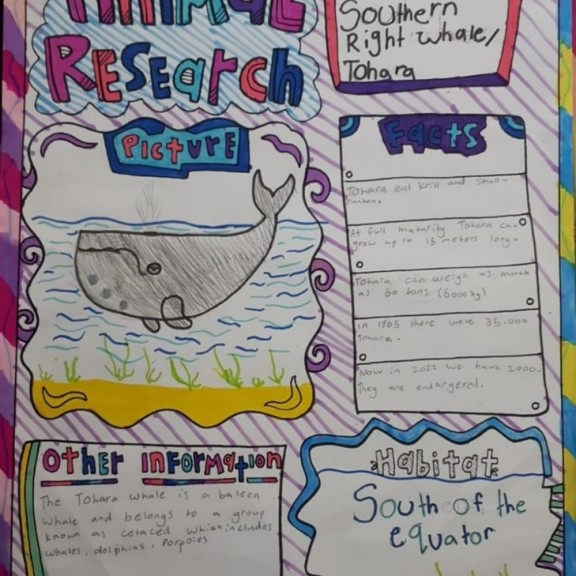 ANIMAL
RESEARCH
Southern
Right whale/
Tohara
PICTURE
Facts
Tohara eat krill and small-
At full maturity Tohara can
grow up to 15 meters long.
Tohara can weigh as much
as 60 tons (6000kg)
In 1805 there were 35,000
Tohara.
Now in 2022 we have 2000.
They are endangered.
Other information
The Tohara whale is a baleen
whale and belongs to a group
known as cetaced which includes
whales, dolphins, Porpoies
Habitat
South of the
equator